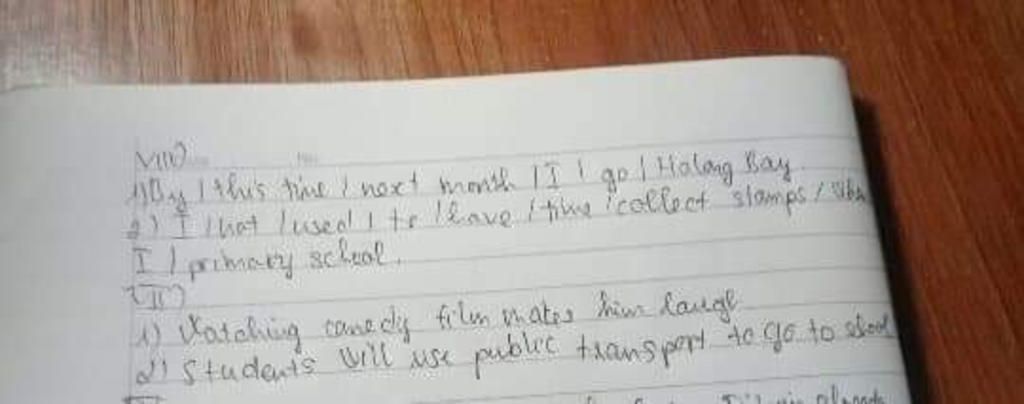 VIII)
1) By / this time / next month / I / go / Halong Bay.
2) I / not / used / to / have / time / collect stamps / when
I / primary school.
II)
1) Watching comedy film makes him laugh
2) Students will use public transport to go to school